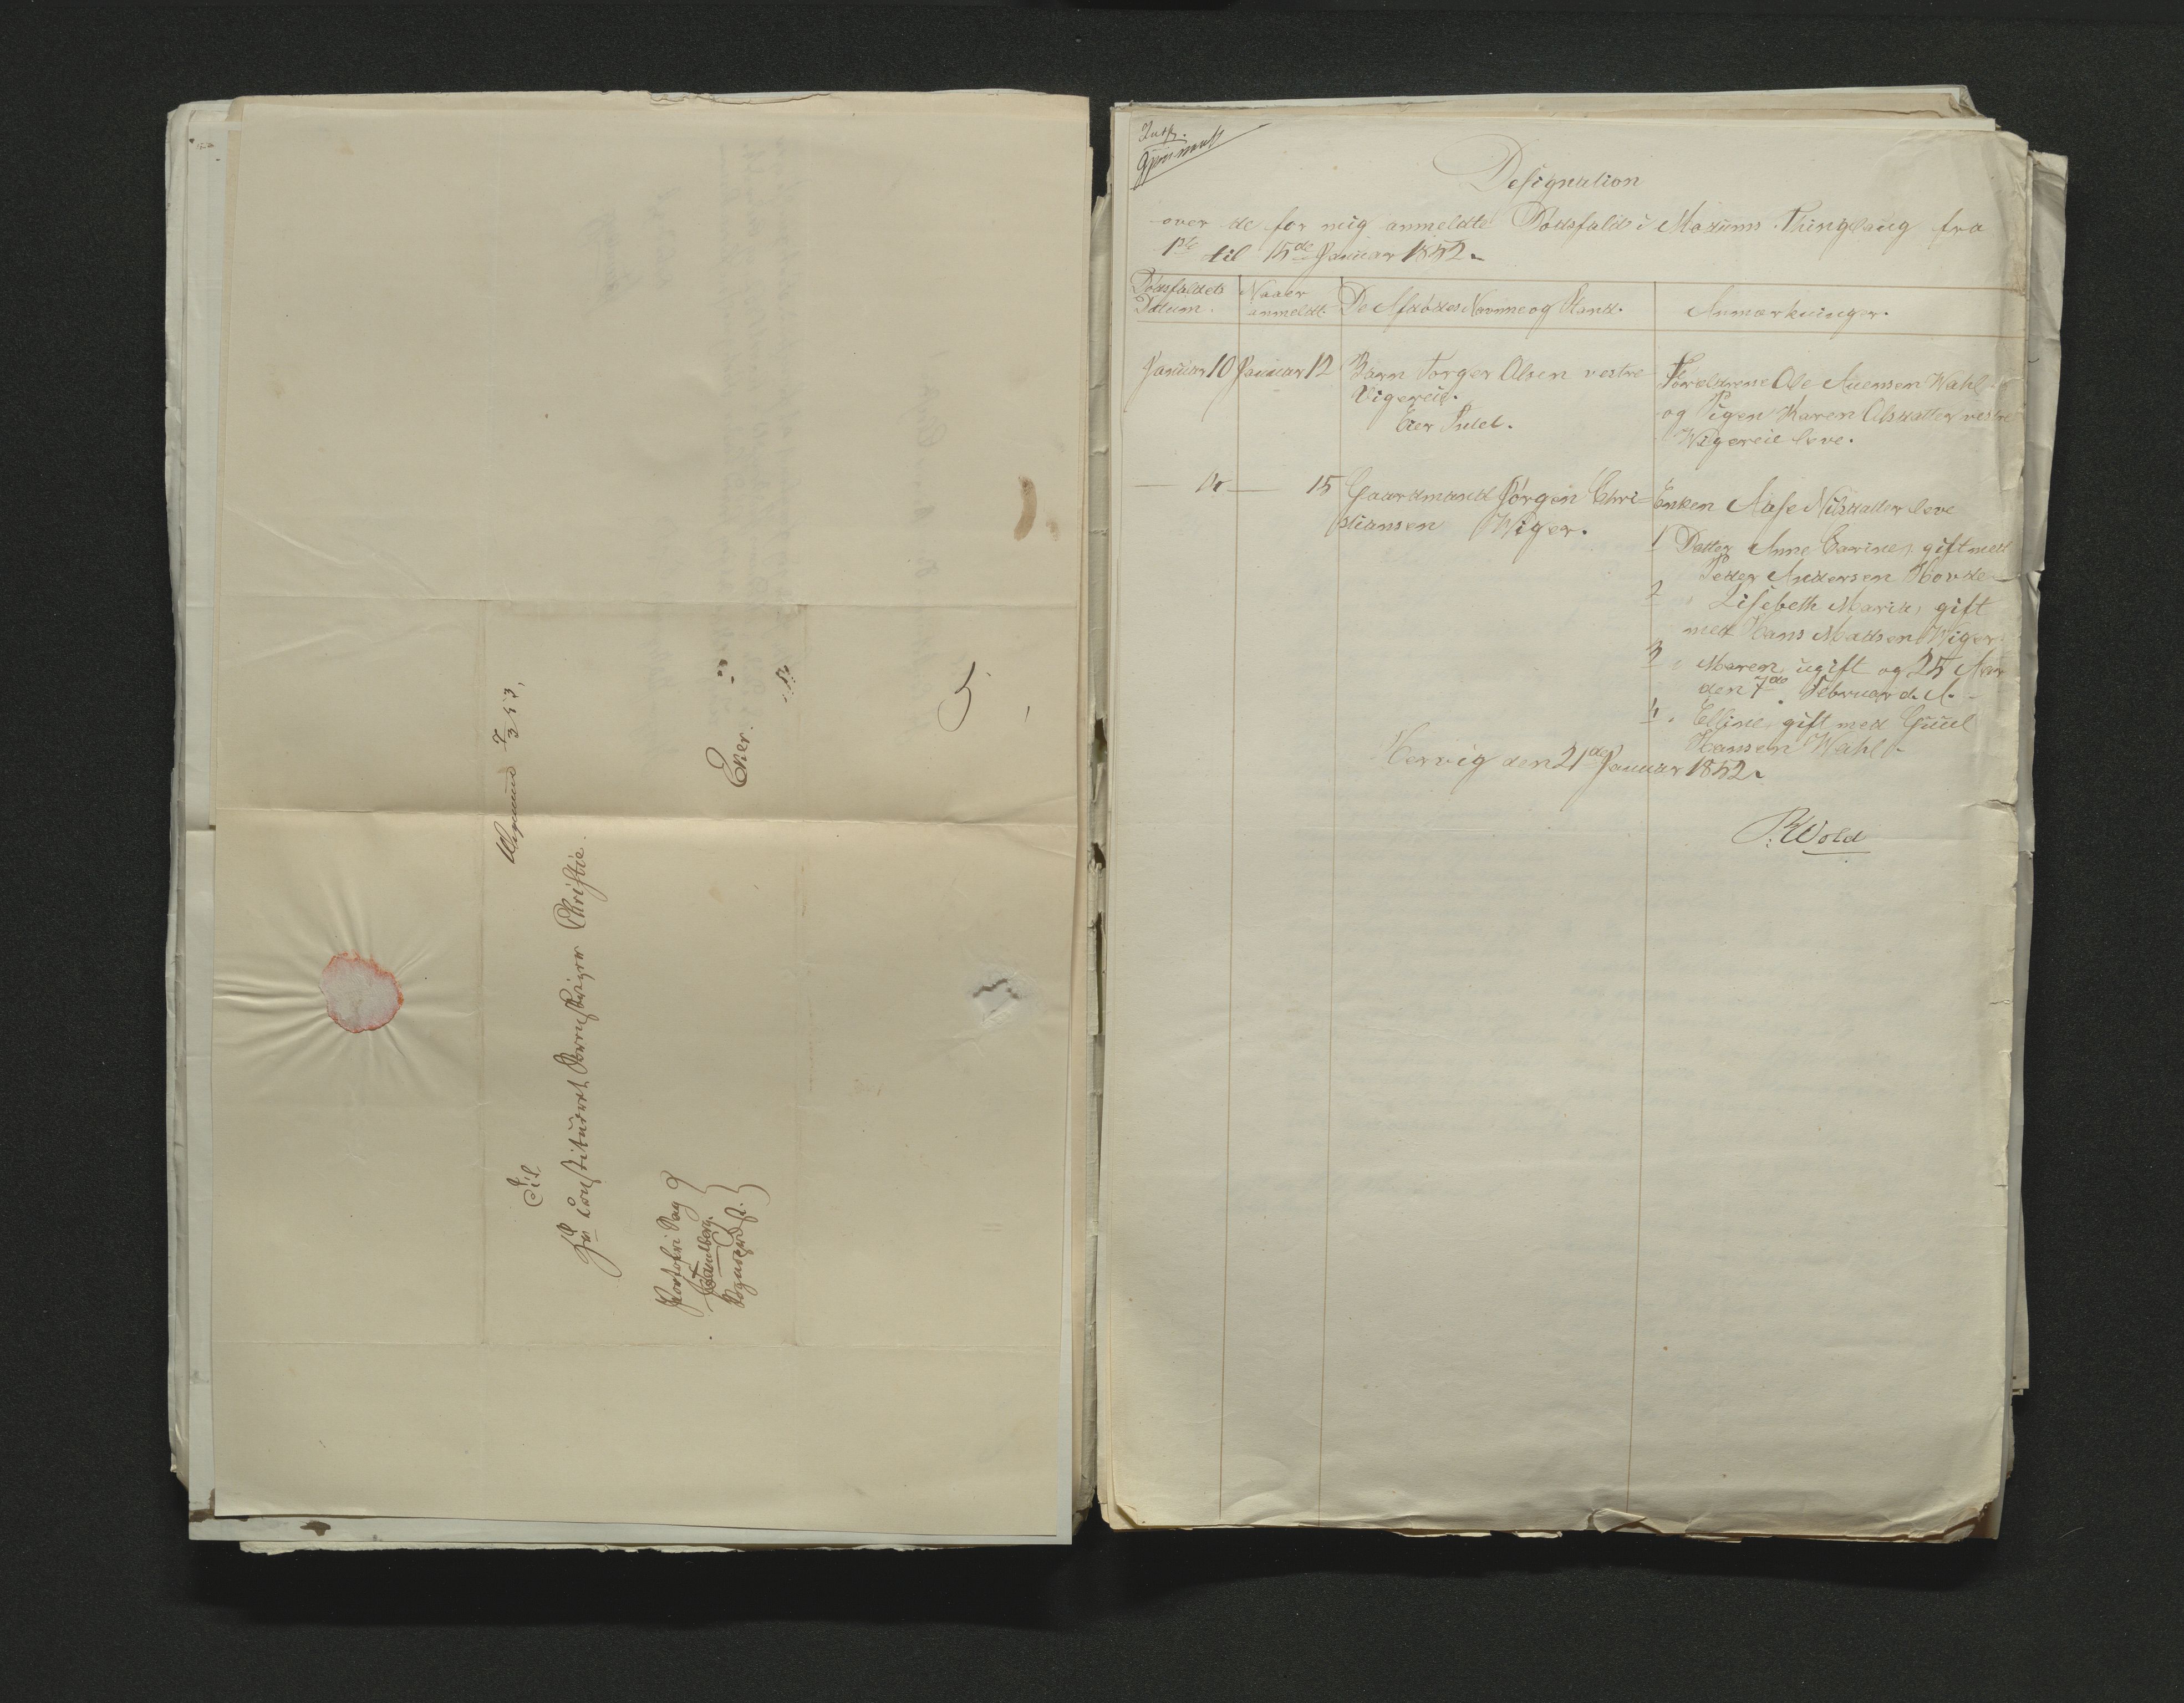 Til
Hr Constitueret Sorenskriver Christie
Eker.
Portofri Sag
Indf.
Designation
over de for mig anmeldte Dødsfald i Modums Thinglaug fra
1ste til 15de Januar 1852.
Dødsfaldets Datum.
Naaer anmeldt.
De Afdødes Navnne og Stand.
Anmærkninger.
Januar 10 Januar 12 Barn Torger Olsen vestre
Vigereie.
Eier Intet.
Foreldrene Ole Auensen Wahl
og Pigen Karen Olsdatter vestre
Wigereie leve.
15 Gaardmand Jørgen Chri-
stiansen Wiger.
Enken Aase Nilsdatter leve
1 Datter Anne Carine, gift med
Peder Andersen Horde
2 " Lisebeth Maria, gift
med Hans Madsen Wiger
3 " Maren, ugift og 25 Aar
den 7de Februar d. A.
4 " Elline, gift med Guul
Hansen Wahl.
Hervig den 21de Januar 1852.
P. Wold